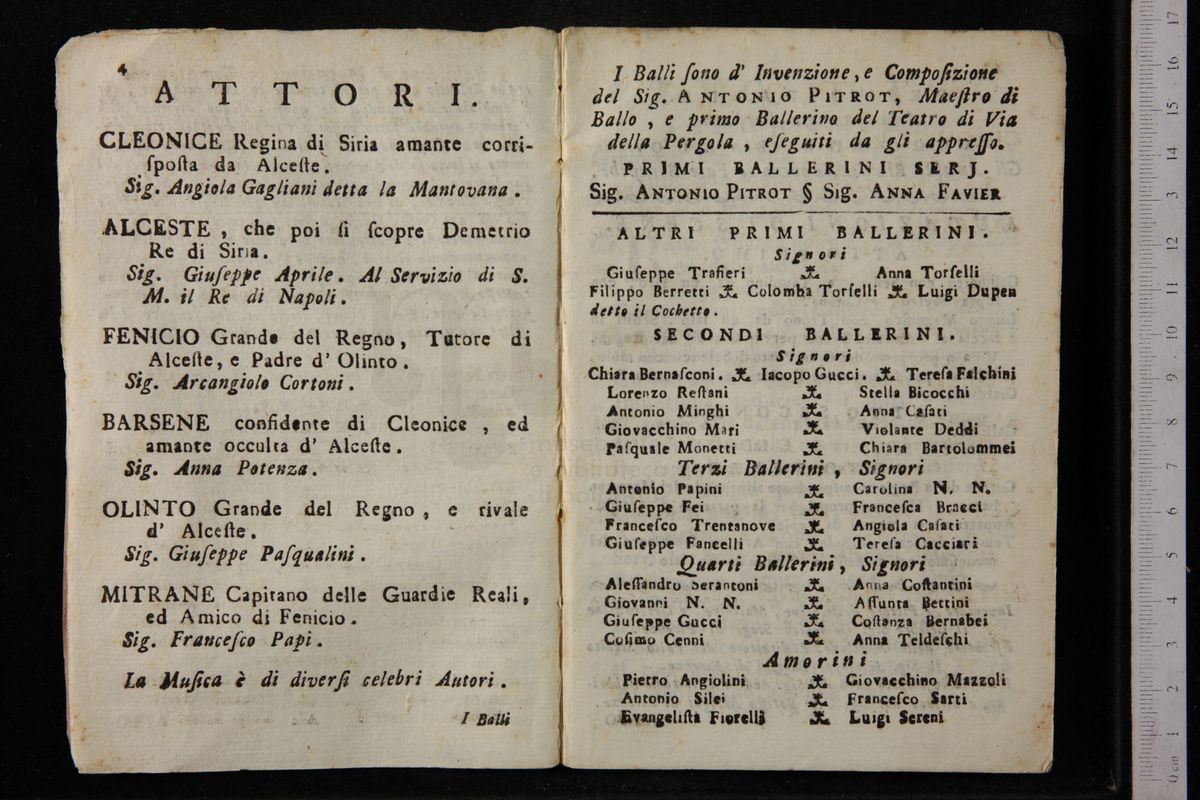 4
ATTORI.
CLEONICE Regina di Siria amante corri-
ſpoſta da Alceſte.
Sig. Angiola Gagliani detta la Mantovana.
ALCESTE, che poi ſi ſcopre Demetrio
Re di Siria.
Sig. Giuſeppe Aprile. Al Servizio di S.
M. il Re di Napoli.
FENICIO Grande del Regno, Tutore di
Alceſte, e Padre d' Olinto.
Sig. Arcangiolo Cortoni.
BARSENE confidente di Cleonice, ed
amante occulta d' Alceſte.
Sig. Anna Potenza.
OLINTO Grande del Regno, e rivale
d' Alceſte.
Sig. Giuſeppe Paſqualini.
MITRANE Capitano delle Guardie Reali,
ed Amico di Fenicio.
Sig. Franceſco Papi.
La Muſica è di diverſi celebri Autori.
I Balli
I Balli ſono d' Invenzione, e Compoſizione
del Sig. ANTONIO PITROT, Maeſtro di
Ballo, e primo Ballerino del Teatro di Via
della Pergola, eſeguiti da gli appreſſo.
PRIMI BALLERINI SERJ.
Sig. ANTONIO PITROT § Sig. ANNA FAVIER
ALTRI PRIMI BALLERINI.
Signori
Giuſeppe Traſieri Anna Torſelli
Filippo Berretti Colomba Torſelli Luigi Dupen
detto il Cochetto.
SECONDI BALLERINI.
Signori
Chiara Bernaſconi. Iacopo Gucci. Tereſa Falchini
Lorenzo Reſtani Stella Bicocchi
Antonio Minghi Anna Caſati
Giovacchino Mari Violante Deddi
Paſquale Monetti Chiara Bartolommei
Terzi Ballerini, Signori
Antonio Papini Carolina N. N.
Giuſeppe Fei Franceſca Bracci
Franceſco Trentanove Angiola Caſati
Giuſeppe Fancelli Tereſa Cacciari
Quarti Ballerini, Signori
Aleſſandro Serantoni Anna Coſtantini
Giovanni N. N. Aſſunta Bettini
Giuſeppe Gucci Coſtanza Bernabei
Coſimo Cenni Anna Teldeſchi
Amorini
Pietro Angiolini Giovacchino Mazzoli
Antonio Silei Franceſco Sarti
Evangeliſta Fiorelli Luigi Sereni
17
16
15
14
13
12
11
10
9
8
7
6
5
4
3
2
1
0 cm